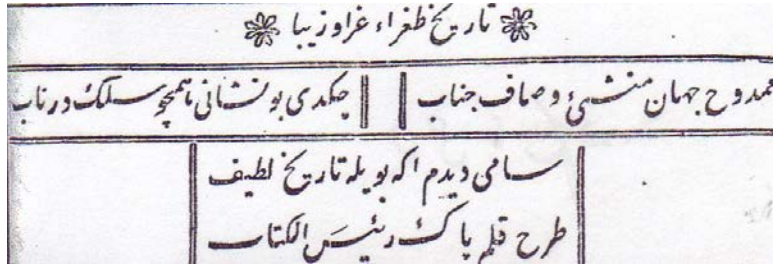 تاریخ طغراء غرا و زیبا
ممدوح جهان منشئ وصاف جناب چکدی بو نشانی همچو سلك در ناب
سامی دیدم اکه بویله تاریخ لطیف
طرح قلم پاك رئیس الكتاب